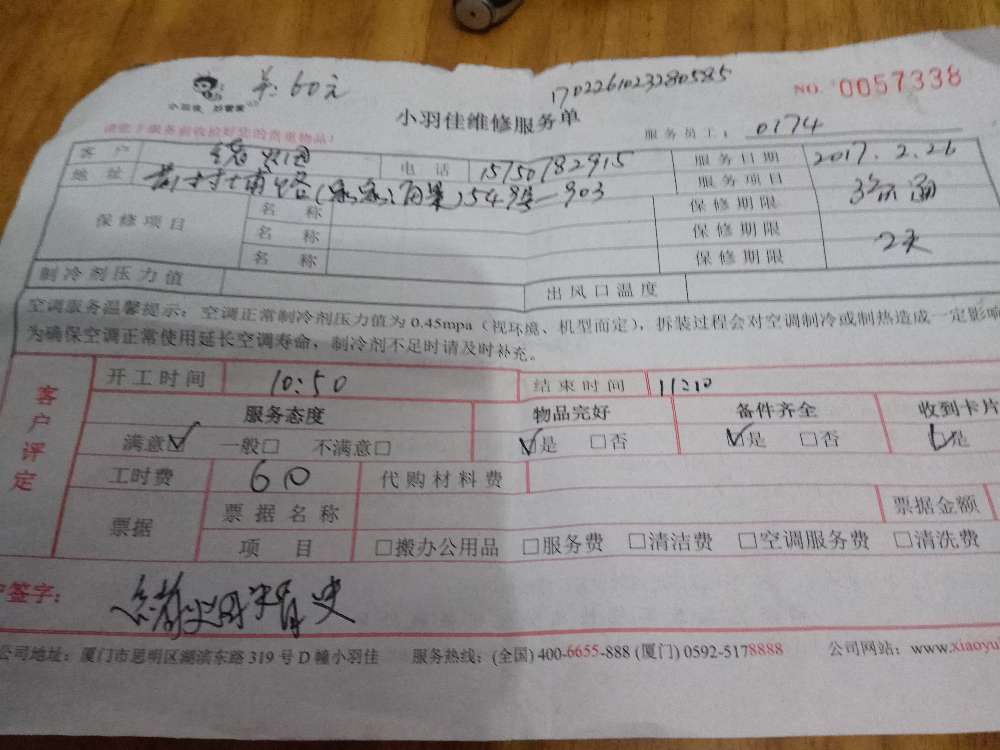 单:60元
1702261023280585
NO. 0057338
小羽佳 好管家
小羽佳维修服务单
服务员工: 0174
客户 电话 15750782915 服务日期 2017.2.26
地址 549号-903 服务项目
保修项目 名称 保修期限
名称 保修期限
名称 保修期限 2天
制冷剂压力值 出风口温度
空调服务温馨提示:空调正常制冷剂压力值为0.45mpa(视环境、机型而定),拆装过程会对空调制冷或制热造成一定影响
为确保空调正常使用延长空调寿命,制冷剂不足时请及时补充。
客户评定
开工时间 10:50 结束时间 11:10
服务态度 物品完好 备件齐全 收到卡片
满意☑ 一般□ 不满意□ ☑是 □否 ☑是 □否 ☑是
工时费 60 代购材料费
票据 票据名称 票据金额
项目 □搬办公用品 □服务费 □清洁费 □空调服务费 □清洗费
签字:
公司地址:厦门市思明区湖滨东路319号D幢小羽佳 服务热线:(全国)400-6655-888(厦门)0592-5178888 公司网站:www.xiaoyu